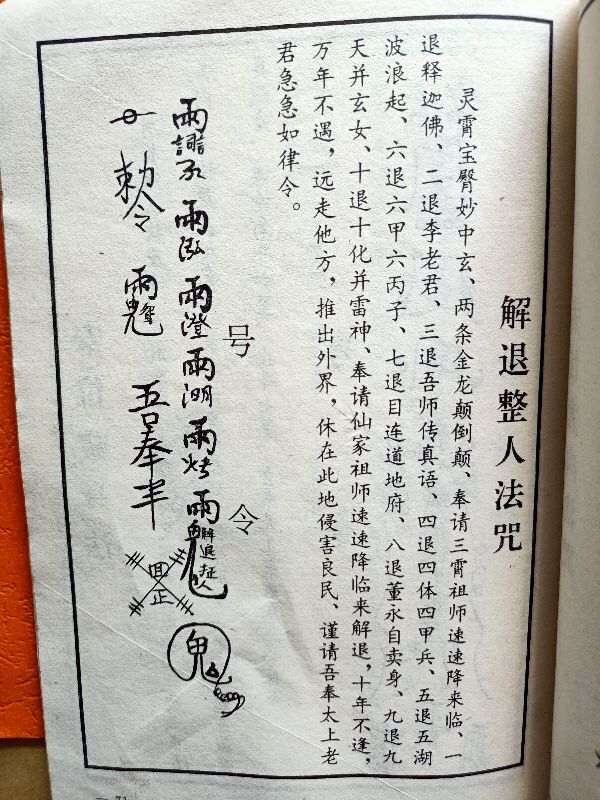 解退整人法咒
灵霄宝臀妙中玄、两条金龙颠倒颠、奉请三霄祖师速速降来临、一
退释迦佛、二退李老君、三退吾师传真语、四退四体四甲兵、五退五湖
波浪起、六退六甲六丙子、七退目连道地府、八退董永自卖身、九退九
天并玄女、十退十化并雷神、奉请仙家祖师速速降临来解退，十年不逢，
万年不遇，远走他方，推出外界，休在此地侵害良民、谨请吾奉太上老
君急急如律令。
号 令
敕令
吾奉
回正
鬼